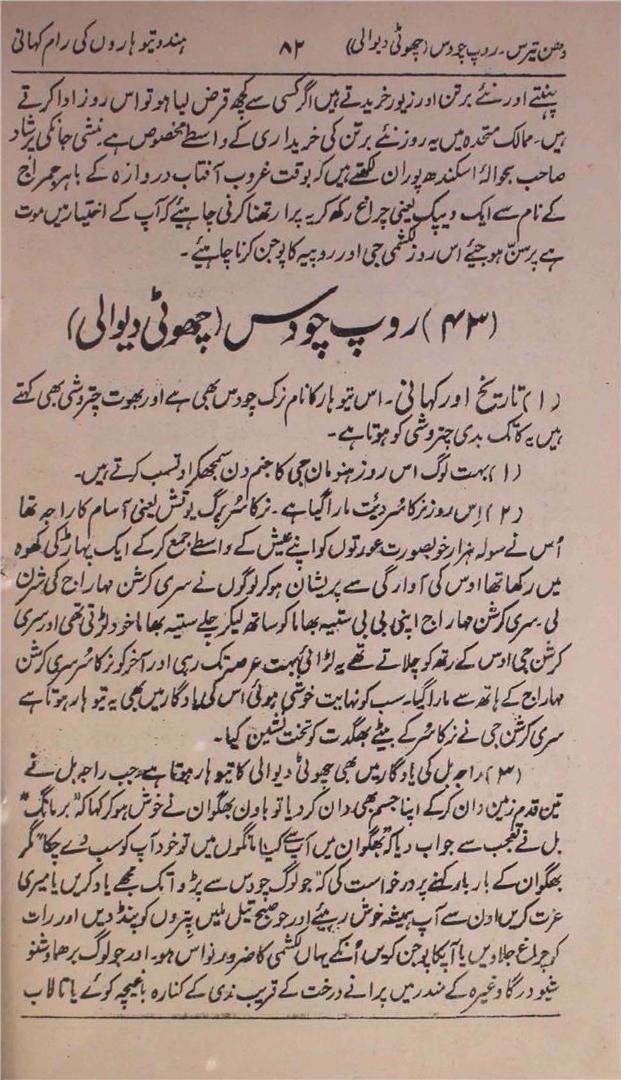 دھن تیرس۔ روپ چودس (چھوٹی دیوالی) ۸۲ ہندو تیوہاروں کی رام کہانی
پہنتے اور نئے برتن اور زیور خریدتے ہیں اگر کسی سے کچھ قرض لیا ہو تو اس روز ادا کرتے
ہیں۔ ممالک متحدہ میں یہ روز نئے برتن کی خریداری کے واسطے مخصوص ہے۔ منشی جانکی پرشاد
صاحب بحوالۂ اسکندھ پوران لکھتے ہیں کہ بوقت غروب آفتاب دروازہ کے باہر جمراج
کے نام سے ایک دیپک یعنی چراغ رکھ کر یہ پرارتھنا کرنی چاہیئے کہ آپ کے اختیار میں موت
ہے پرسنّ ہو جیئے اس روز لکشمی جی اور روپیہ کا پوجن کرنا چاہئے۔
(۴۳) روپ چودس (چھوٹی دیوالی)
(۱) تاریخ اور کہانی۔ اس تیوہار کا نام نرک چودس بھی ہے اور بھوت چتروشی بھی کہتے
ہیں یہ کاتک بدی چتروشی کو ہوتا ہے۔
(۱) بہت لوگ اس روز ہنومان جی کا جنم دن سمجھکر اوتسب کرتے ہیں۔
(۲) اِس روز نرکاسُر دیئت مارا گیا ہے۔ نرکاسُر پرگ یوتش یعنی آسام کا راجہ تھا
اُس نے سولہ ہزار خوبصورت عورتوں کو اپنے عیش کے واسطے جمع کر کے ایک پہاڑ کی کھوہ
میں رکھا تھا اوس کی آوارگی سے پریشان ہوکر لوگوں نے سری کرشن مہاراج کی شرن
لی۔ سری کرشن مہاراج اپنی بی بی ستیہ بھاما کو ساتھ لیکر چلے ستیہ بھاما خود لڑتی تھی اور سری
کرشن جی اوس کے رتھ کو چلاتے تھے یہ لڑائی بہت عرصہ تک رہی اور آخر کو نرکاسُر سری کرشن
مہاراج کے ہاتھ سے مارا گیا۔ سب کو نہایت خوشی ہوئی اس کی یادگار میں بھی یہ تیوہار ہوتا ہے
سری کرشن جی نے نرکاسُر کے بیٹے بھگدت کو تخت نشین کیا۔
(۳) راجہ بل کی یادگار میں بھی چھوٹی دیوالی کا تیوہار ہوتا ہے۔ جب راجہ بل نے
تین قدم زمین دان کر کے اپنا جسم بھی دان کر دیا تو باون بھگوان نے خوش ہوکر کہا کہ "بر مانگ"
بل نے تعجب سے جواب دیا کہ "بھگوان میں آپ سے کیا مانگوں میں تو خود آپ کو سب دے چکا" مگر
بھگوان کے بار بار کہنے پر درخواست کی کہ "جو لوگ چودس سے پڑوا تک مجھے یاد کریں یا میری
عزت کریں اون سے آپ ہمیشہ خوش رہیئے اور جو صبح تیل ملیں پتروں کو پنڈ دیں اور رات
کو چراغ جلاویں یا آپکا پوجن کریں اُنکے یہاں لکشمی کا ضرور نواس ہو۔ اور جو لوگ برھما وشنو
شیو درگا وغیرہ کے مندر میں پرانے درخت کے قریب ندی کے کنارہ باغیچہ کوئے یا تالاب